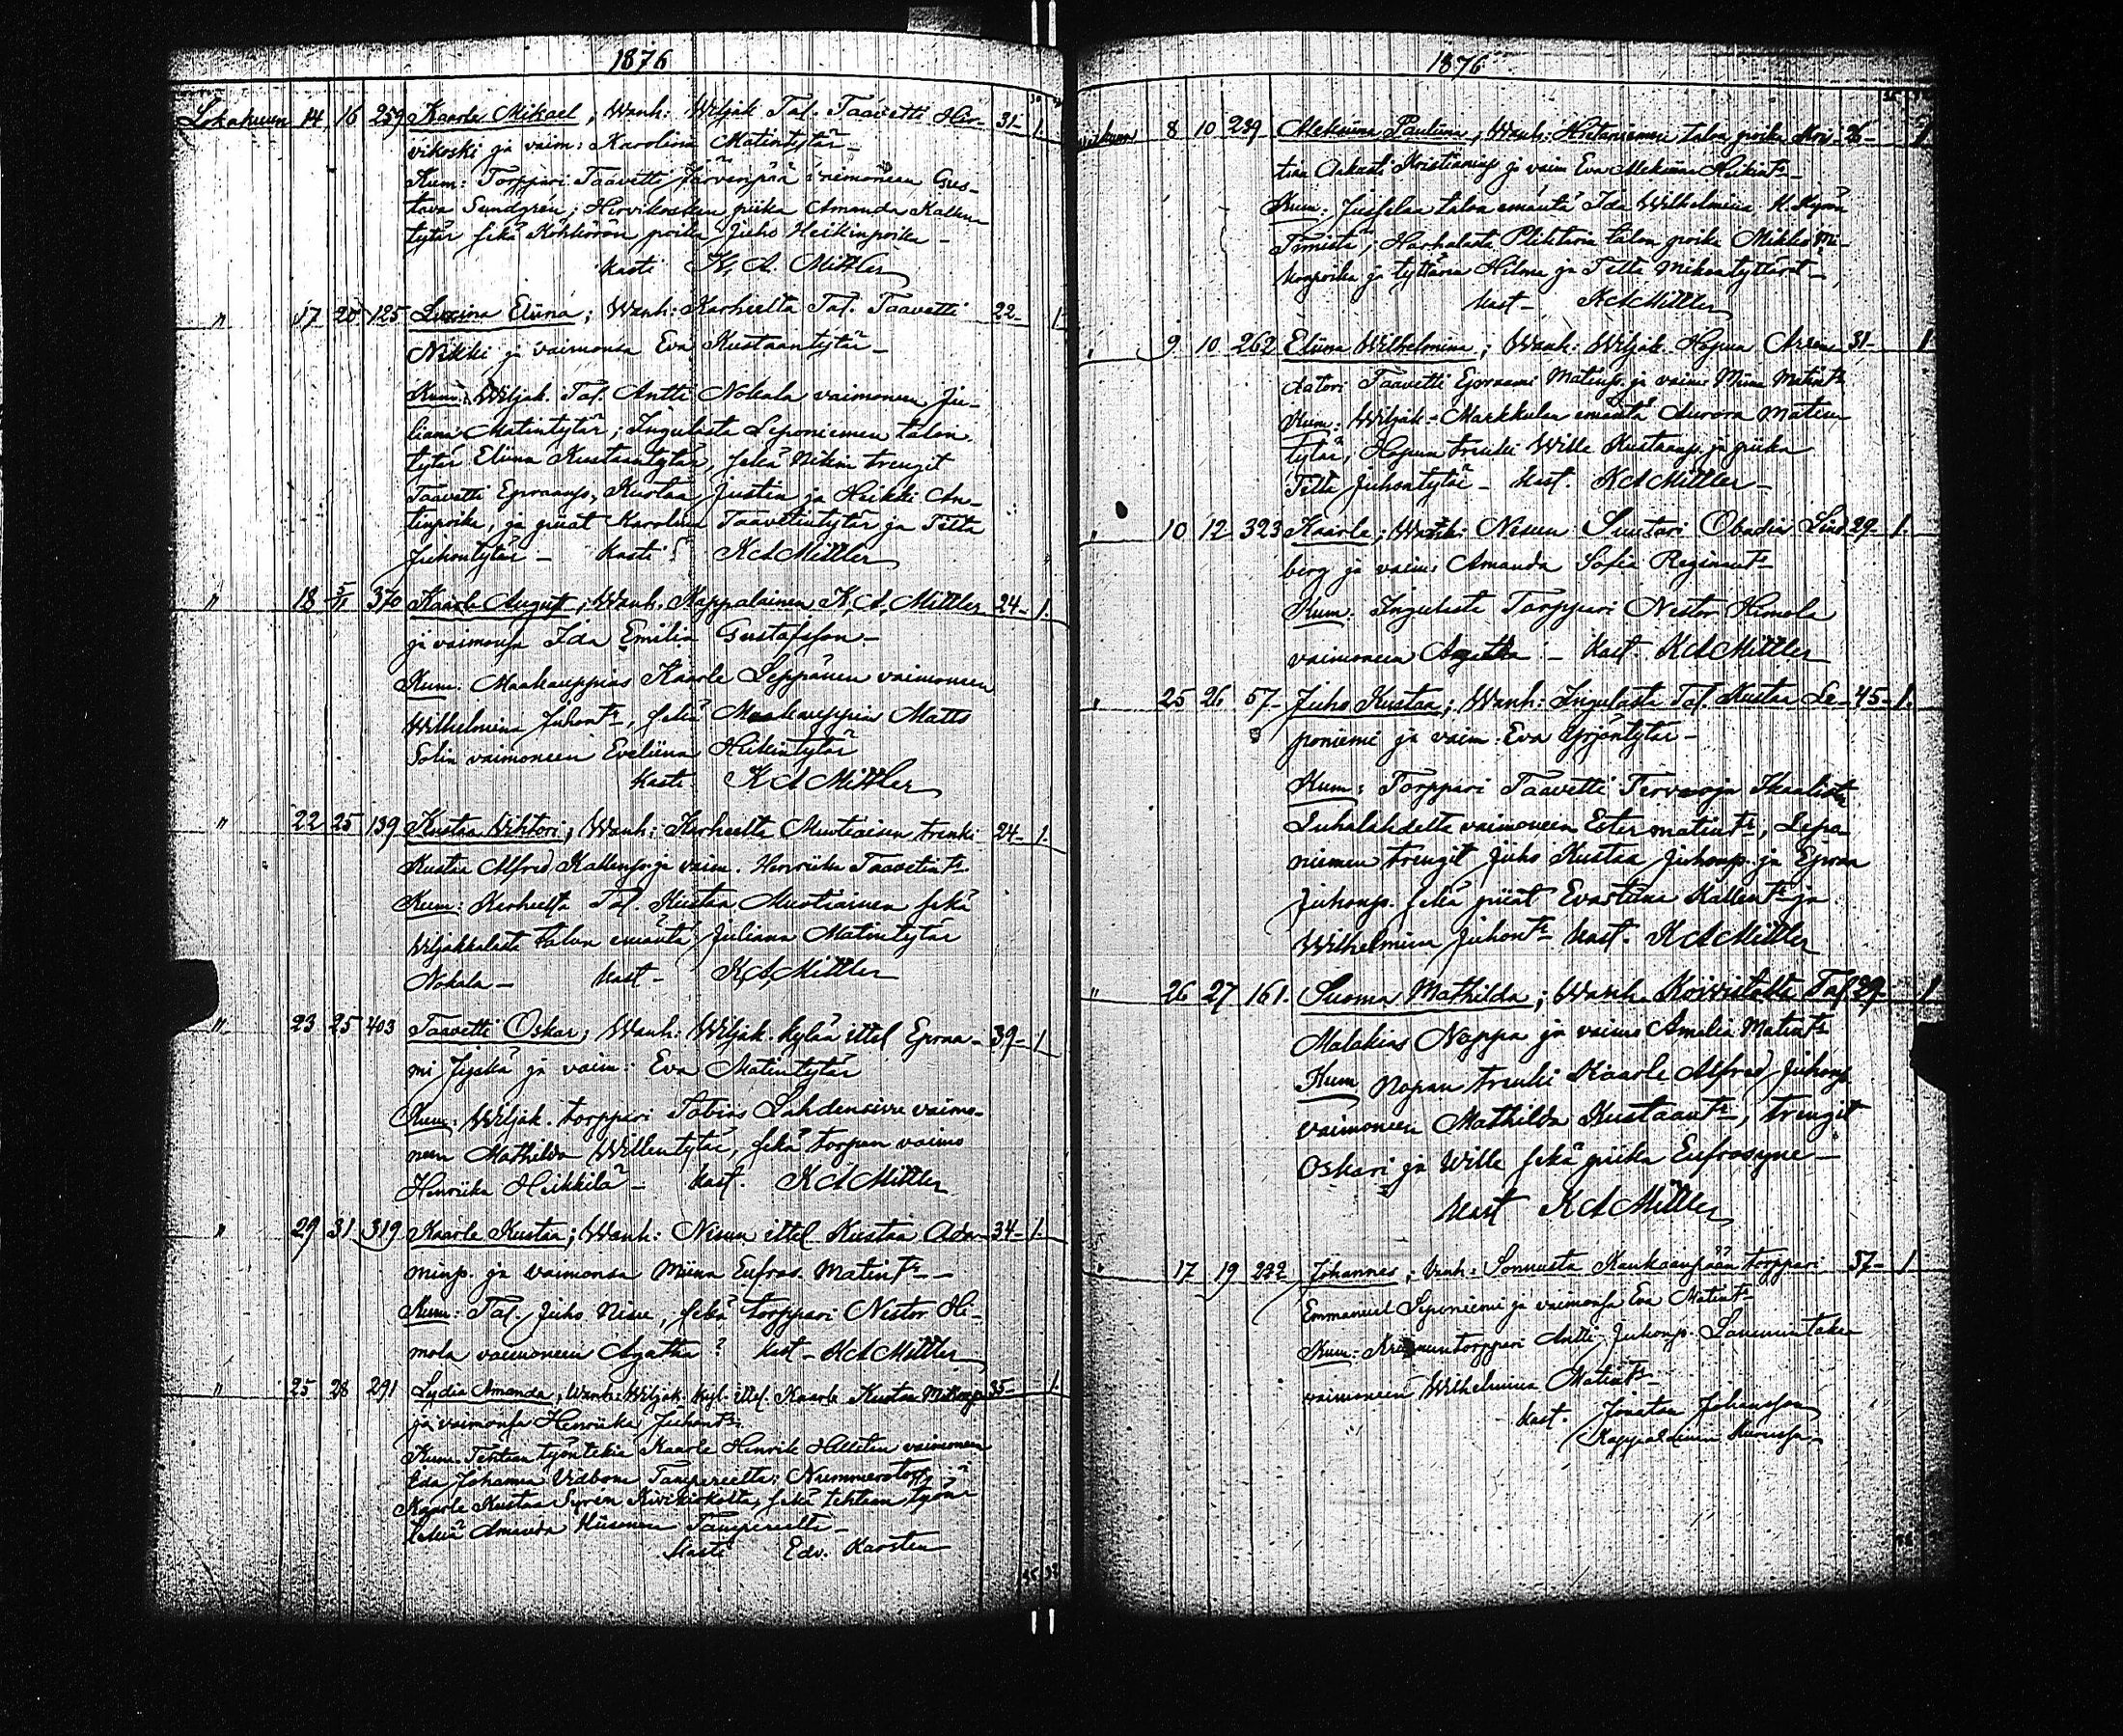 1876
Lokakuun 14 16 239 Kaarle Mikael; Wanh: Wiljak Tal. Taavetti Hir- 31- 1.
vikoski ja vaim: Karolina Matintytär-
Kum: Torppari Taavetti Järvenpää vaimoneen Gus-
tava Sundgrén; Hirvikosken piika Amanda Kallen-
tytär sekä Köhkörön poika Juho Heikinpoika-
Kasti K. A. Mittler
" 17 20 125 Eliina; Wanh: Karheelta Tal. Taavetti 22- 1.
Nikki ja vaimonsa Eva Kustaantytär-
Kum: Wiljak. Tal. Antti Nokala vaimoneen Ju-
liana Matintytär; Ingulasta Leponiemen talon
tytär Eliina Kustaantytär, sekä Nikin trengit
Taavetti Eproainp., Kustaa Justin ja Heikki An-
tinpoika, ja piiat Karolina Taavetintytär ja Fetta
Juhontytär- Kasti K A Mittler
" 18 5/11 370 Kaarle August; Wanh. Kappalainen K. A. Mittler 24- 1.
ja vaimonsa Ida Emilia Gustafsson-
Kum: Maakauppias Kaarle Leppänen vaimoneen
Wilhelmina Juhontr, sekä Maakauppias Matts
Solin vaimoneen Eveliina Heikintytär
Kasti K A Mittler
" 22 25 139 Kustaa Wihtori; Wanh: Karheelta Muotiaisen trenki 24- 1.
Kustaa Alfred Kallenp. ja vaim. Henriika Taavetintr.
Kum: Karheelta Tal. Kustaa Muotiainen sekä
Wiljakkalasta talon emäntä Juliana Matintytär
Nokala- Kast- K A Mittler
" 23 25 403 Taavetti Oskar; Wanh: Wiljak. kylän ittel Eproa- 39- 1.
mi ja vaim: Eva Matintytär
Kum: Wiljak. torppari Tobias Lahdensivu vaimo-
neen Mathilda Willentytär, sekä torpan vaimo
Henriika Heikkilä- Kast. K A Mittler
" 29 31 319 Kaarle Kustaa; Wanh: Nisun ittel Kustaa Ada- 34- 1.
minp. ja vaimonsa Miina Eufros. Matintr-
Kum: Tal. Juho Nisu, sekä torppari Nestor Hi-
mola vaimoneen Agatha? Kast- K A Mittler
" 25 28 291 Lydia Amanda; Wanh: Wiljak. kyl. ittel. Kaarle Kustaa 35- 1.
ja vaimonsa Henriika Juhontr.
Kum. Tehtaan työntekiä Kaarle Henrik vaimoneen
Eda Johanna Tampereelta;
Kaarle Kustaa Syrén sekä tehtaan työn
tekiä Amanda Tampereelta-
Kasti Edv. Karsten
1876
8 10 239 Aleksiina Pauliina; Wanh: Hietaniemen talon poika Kris- 26- 1.
tian Aukusti Kristianinp. ja vaim Eva Aleksiina Heikintr-
Kum: Jussilan talon emäntä Ida Wilhelmina, H. Kyrön
Timista; Harhalasta talon poika Mikko Mi-
konpoika ja tyttären Hilma ja Fetta Mikontyttäret-
Kast- K A Mittler
" 9 10 262 Eliina Wilhelmina; Wanh: Wiljak. Hagun Arren- 31- 1.
datori Taavetti Eproami Matinp. ja vaim: Miina Matintr.
Kum: Wiljak- Markkulan emäntä Aurora Matin
tytär; Hagun trenki Wille Kustaanp. ja piika
Fetta Juhontytär- Kast. K A Mittler-
" 10 12 323 Kaarle; Wanh: Nisun Suutari Obadia Lind- 29- 1.
berg ja vaim: Amanda Sofia Reginantr-
Kum: Ingulasta Torppari Nestor Himola
vaimoneen Agatha- Kast. K A Mittler
" 25 26 57- Juho Kustaa; Wanh: Ingulasta Tal. Kustaa Le- 45- 1.
poniemi ja vaim: Eva Yrjöntytär-
Kum: Torppari Taavetti Tervaoja Ikaalista
Luhalahdelta vaimoneen Ester Matintr, Lepo-
niemen trengit Juho Kustaa Juhonp. ja Eproa
Juhonp. sekä piiat Evastiina Kallentr ja
Wilhelmina Juhontr- Kast. K A Mittler
" 26 27 161. Suoma Mathilda; Wanh. Koivistolta Tal. 29- 1.
Malakias Noppa ja vaimo Amalia Matintr.
Kum Nopan trenki Kaarle Alfred Juhonp
vaimoneen Mathilda Kustaantr-, trengit
Oskari ja Wille sekä piika Eufrosyne-
Kast K A Mittler
" 17 19 272 Johannes; Wanh: Sonnusta Kaukaanpään torppari 37- 1.
Emmanuel Leponiemi ja vaimonsa Eva Matintr-
Kum: torppari Antti Juhonp.
vaimoneen Wilhelmina Matintr-
Kast. Jonatan Johansson
Kappalainen Kurussa